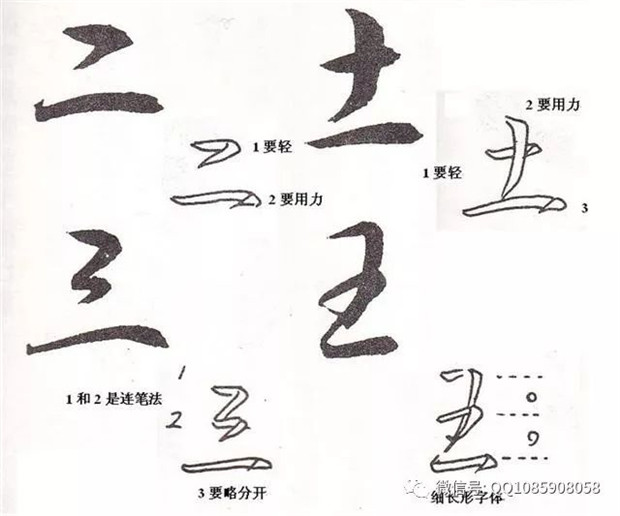 二 土
2要用力
1要轻
1要轻
2要用力
3
三 王
1
1和2是连笔法
2
3要略分开
细长形字体
微信号: QQ1085908058